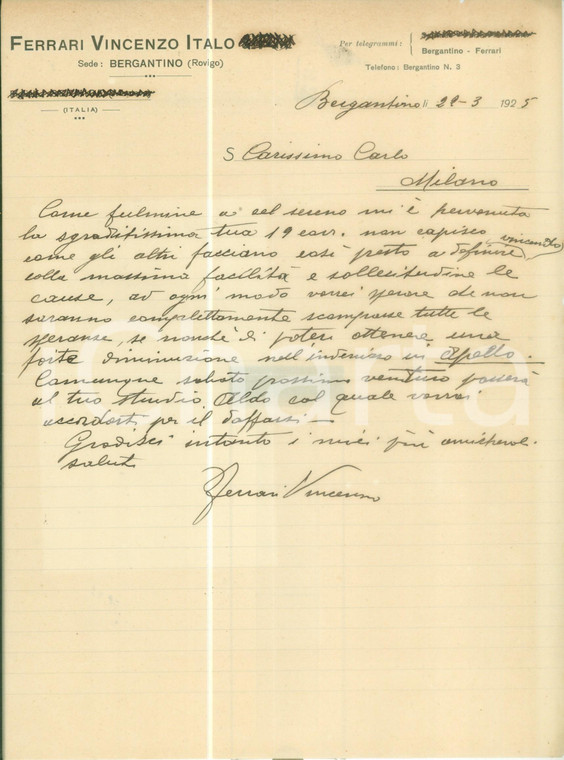 FERRARI VINCENZO ITALO
Sede: BERGANTINO (Rovigo)
(ITALIA)
Per telegrammi:
Bergantino - Ferrari
Telefono: Bergantino N. 3
Bergantino li 28-3 1925
S Carissimo Carlo
Milano
Come fulmine a ciel sereno mi è pervenuta
la sgraditissima tua 19 corr. non capisco
come gli altri facciano così presto a definire vincendo
colla massima facilità e sollecitudine le
cause, ad ogni modo vorrei sperare che non
saranno complettamente scomparse tutte le
speranze, se nonchè di poter ottenere una
forte diminuzione nell'indennizzo in Apello.
Comunque sabato prossimo venturo passerà
al tuo studio Aldo col quale vorrai
accordarti per il daffarsi
Gradisci intanto i miei più amichevoli
saluti
Ferrari Vincenzo